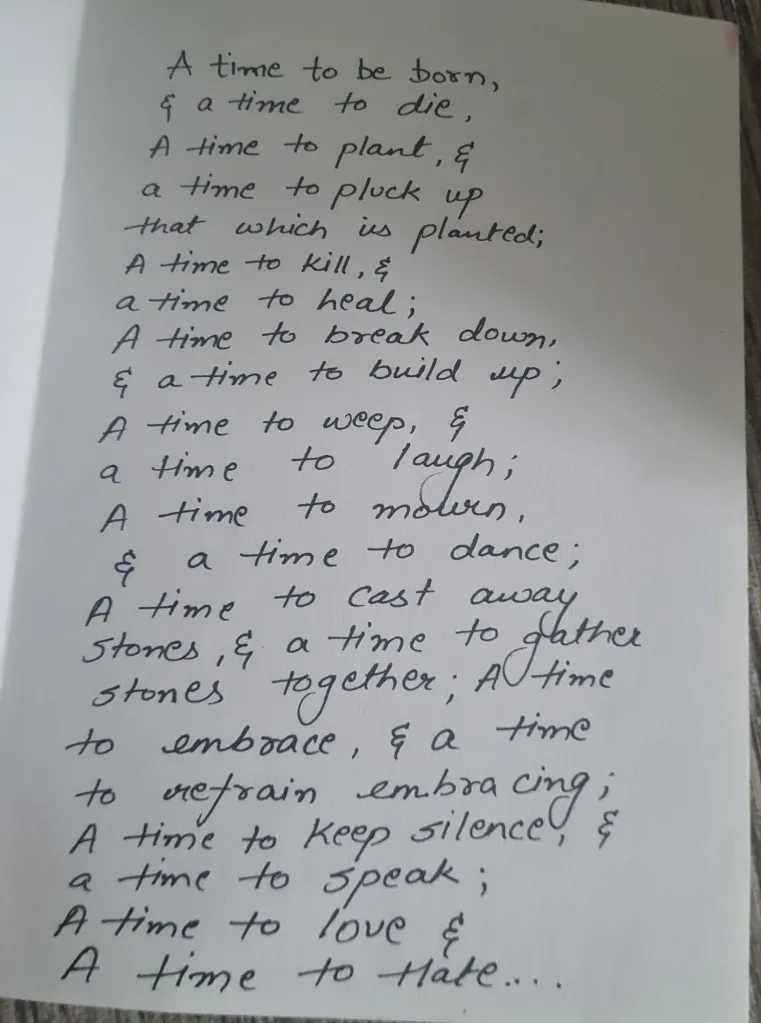 A time to be born,
& a time to die,
A time to plant, &
a time to pluck up
that which is planted;
A time to kill, &
a time to heal;
A time to break down,
& a time to build up;
A time to weep, &
a time to laugh;
A time to mourn,
& a time to dance;
A time to cast away
stones, & a time to gather
stones together; A time
to embrace, & a time
to refrain embracing;
A time to keep silence, &
a time to speak;
A time to love &
A time to Hate....